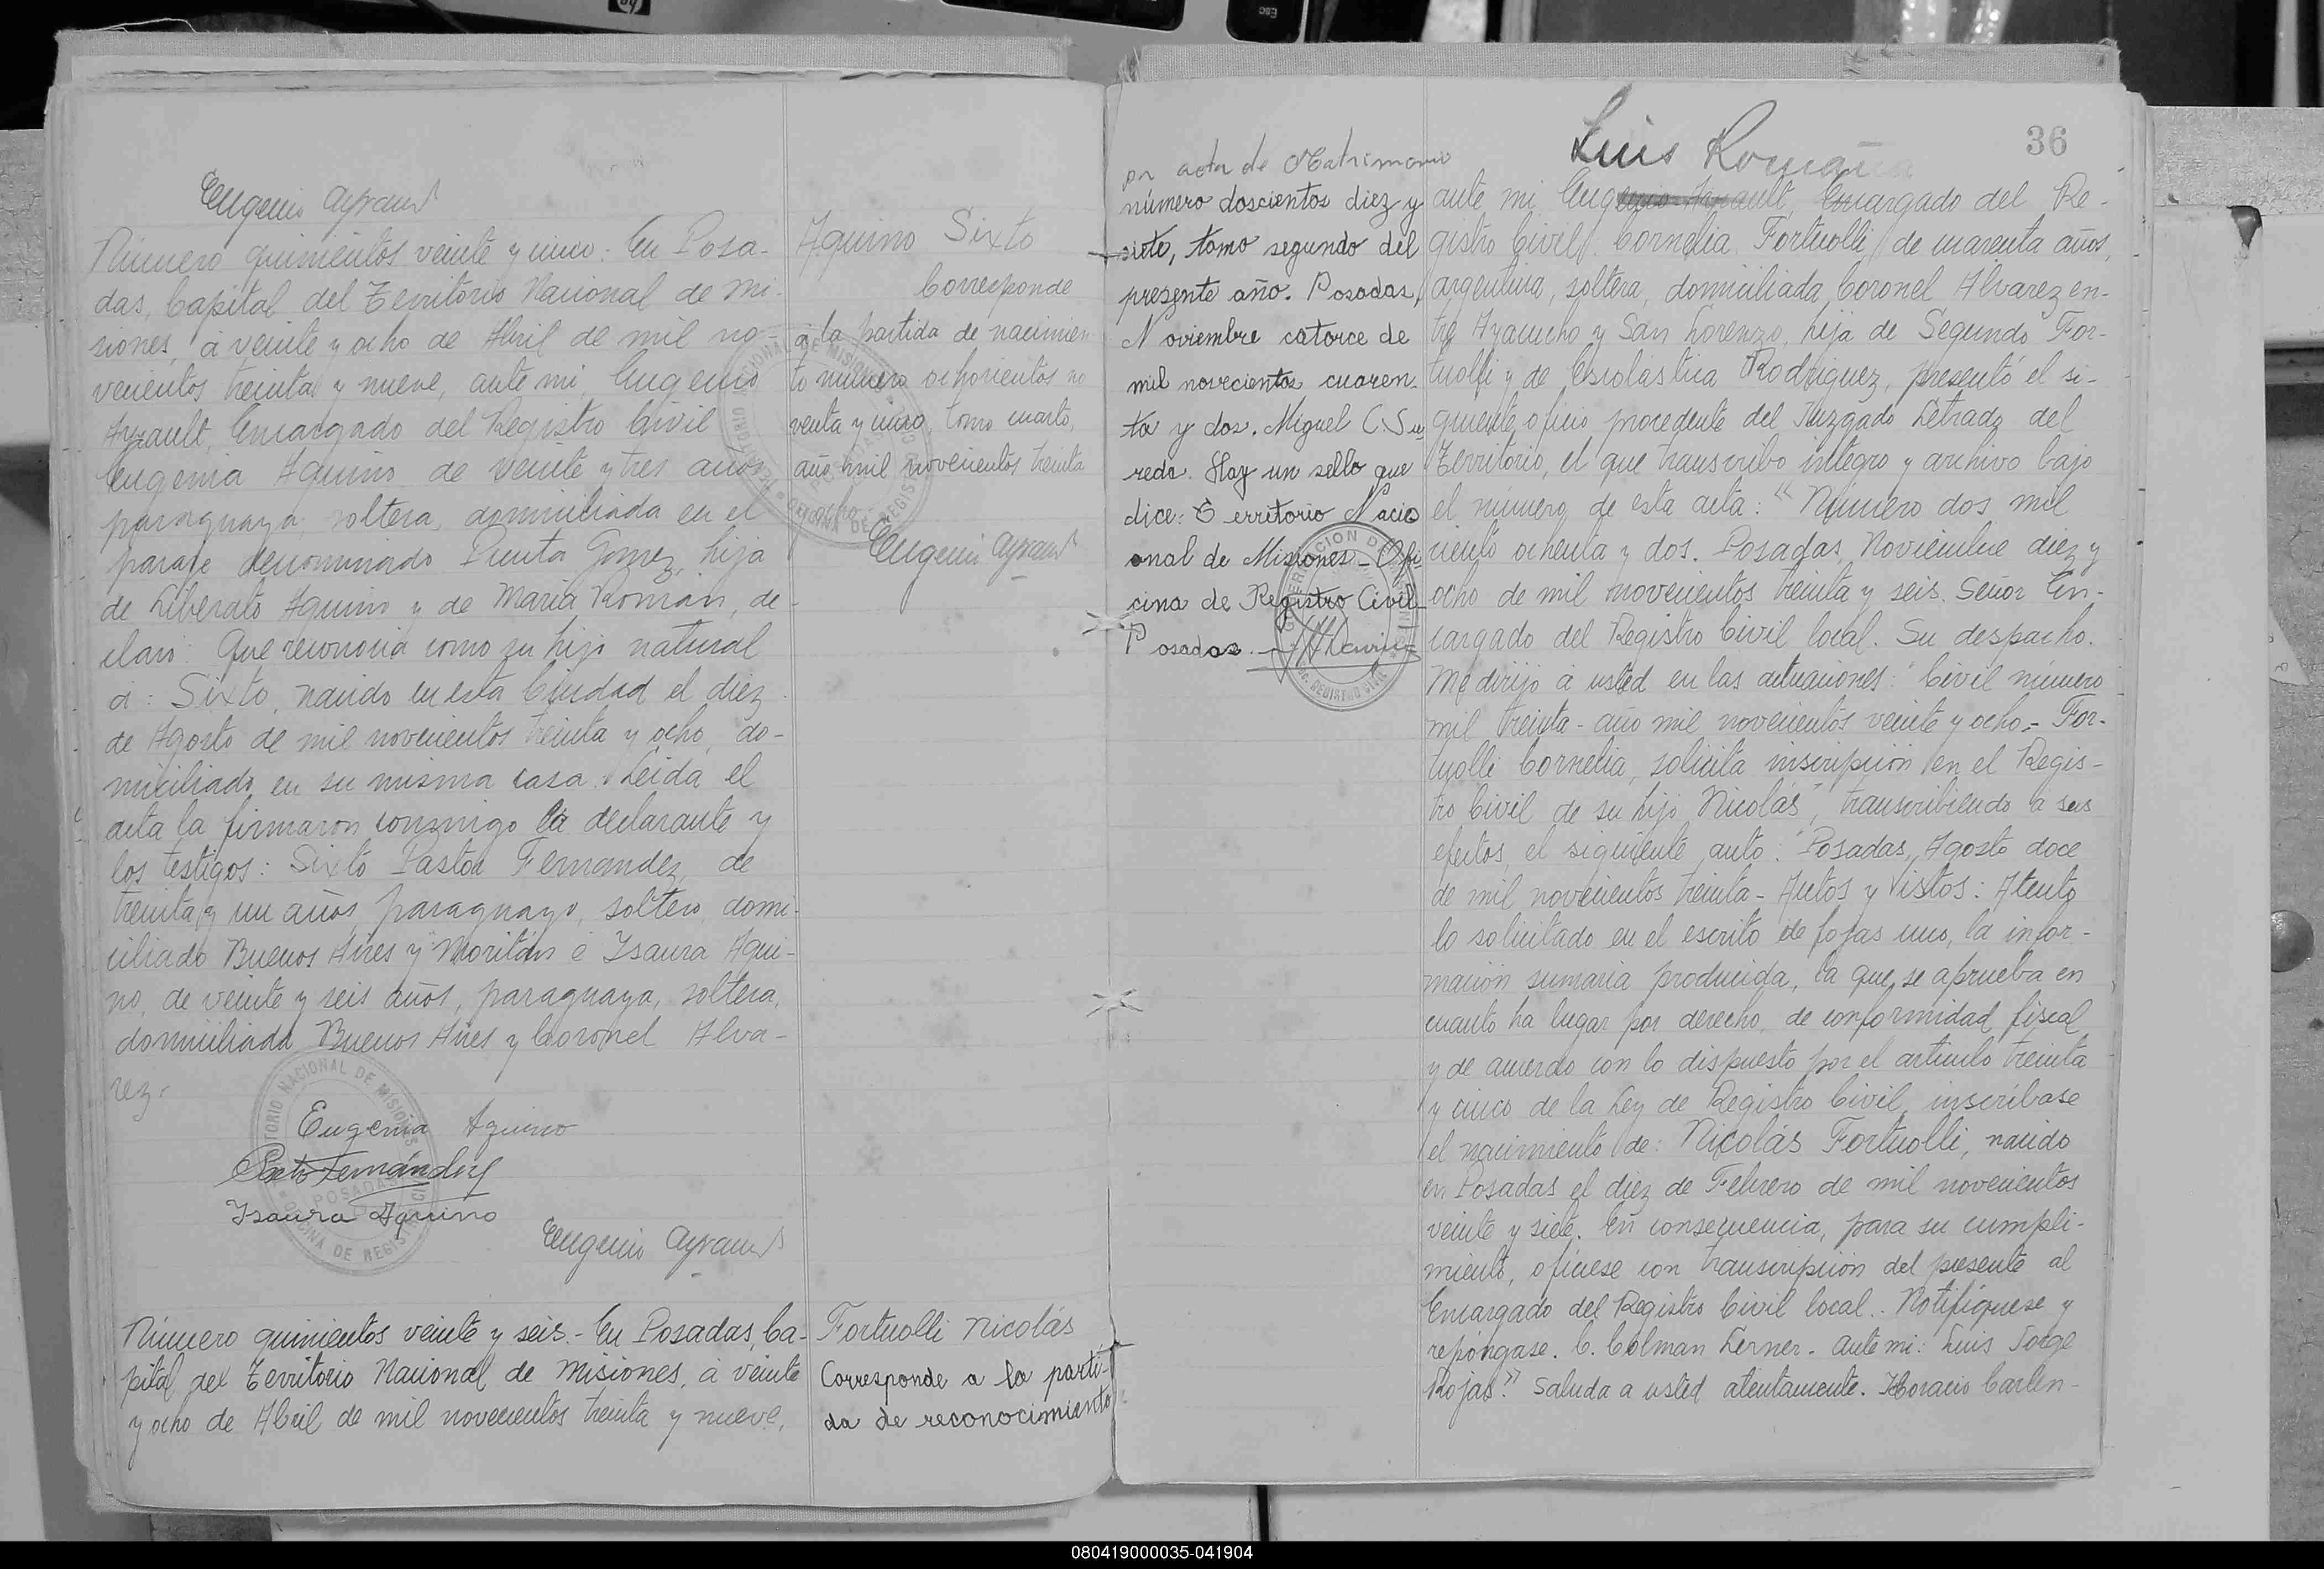 Eugenio Ayrault
Número quinientos veinte y cinco: En Posa-
das, Capital del Territorio Nacional de Mi-
siones, á veinte y ocho de Abril de mil no-
vecientos treinta y nueve, ante mi, Eugenio
Ayrault, Encargado del Registro Civil
Eugenia Aquino de veinte y tres años
paraguaya, soltera, domiciliada en el
paraje denominado Punta Gomez, hija
de Liberato Aquino y de Maria Román, de-
claró: Que reconocia como su hijo natural
á: Sixto, nacido en esta Ciudad el diez
de Agosto de mil novecientos treinta y ocho, do-
miciliado en su misma casa. Leida el
acta la firmaron conmigo la declarante y
los testigos: Sixto Pastor Fernandez, de
treinta y un años, paraguayo, soltero, domi-
ciliado Buenos Aires y é Isaura Aqui-
no, de veinte y seis años, paraguaya, soltera,
domiciliada Buenos Aires y Coronel Alva-
rez.
Eugenia Aquino
Fernández
Isaura Aquino
Eugenio Ayrault
TERRITORIO NACIONAL DE MISIONES
POSADAS
OFICINA DE REGISTRO CIVIL
Número quinientos veinte y seis.- En Posadas, Ca-
pital del Territorio Nacional de Misiones, á veinte
y ocho de Abril de mil novecientos treinta y nueve,
Aquino Sixto
Corresponde
á la partida de nacimien
to número ochocientos no
venta y cinco, tomo cuarto,
año mil novecientos treinta
ocho.
Eugenio Ayrault
Fortuolli Nicolás
Corresponde a la parti-
da de reconocimiento
por acta de Matrimonio
número doscientos diez y
siete, tomo segundo del
presente año. Posadas,
Noviembre catorce de
mil novecientos cuaren-
ta y dos. Miguel C. Su
reda. Hay un sello que
dice: Territorio Nacio
onal de Misiones - Ofi
cina de Registro Civil -
Posadas.
36
Luis Romaña
ante mi Eugenio Ayrault, Encargado del Re-
gistro Civil, Cornelia Fortuolli, de cuarenta años,
argentina, soltera, domiciliada Coronel Alvarez en-
tre Ayacucho y San Lorenzo, hija de Segundo For-
tuolli y de Escolástica Rodriguez, presentó el si-
guiente oficio procedente del Juzgado Letrado del
Territorio, el que transcribo integro y archivo bajo
el número de esta acta: "Número dos mil
ciento ochenta y dos. Posadas, Noviembre diez y
ocho de mil novecientos treinta y seis. Señor En-
cargado del Registro Civil local. Su despacho.
Me dirijo á usted en las actuaciones: "Civil número
mil treinta - año mil novecientos veinte y ocho.- For-
tuolli Cornelia, solicita inscripción en el Regis-
tro Civil de su hijo Nicolás", transcribiendo a sus
efectos, el siguiente auto: "Posadas, Agosto doce
de mil novecientos treinta - Autos y Vistos: Atento
lo solicitado en el escrito de fojas uno, la infor-
mación sumaria producida, la que se aprueba en
cuanto ha lugar por derecho, de conformidad fiscal
y de acuerdo con lo dispuesto por el articulo treinta
y cinco de la Ley de Registro Civil, inscribase
el nacimiento de: Nicolás Fortuolli, nacido
en Posadas el diez de Febrero de mil novecientos
veinte y siete. En consecuencia, para su cumpli-
miento, ofíciese con transcripción del presente al
Encargado del Registro Civil local. Notifíquese y
repóngase. C. Colman Lerner. Ante mi: Luis Jorge
Rojas." Saluda a usted atentamente. Horacio Carlen-
080419000035-041904